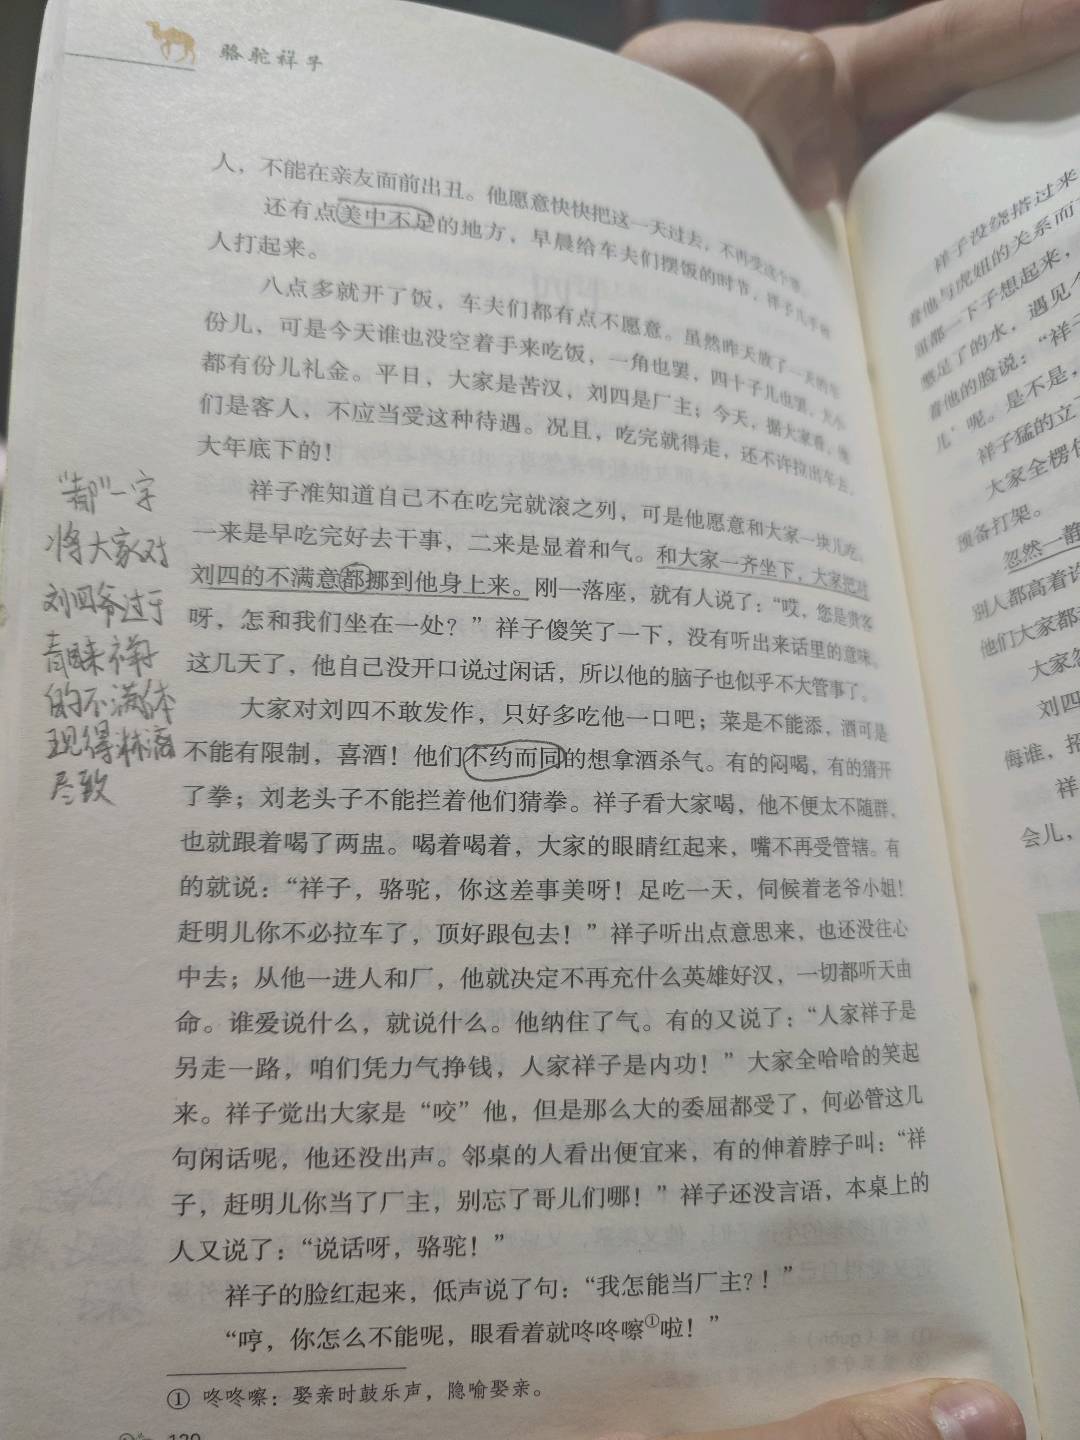 骆驼祥子
人，不能在亲友面前出丑。他愿意快快把这一天过去，不再受这个罪。
还有点美中不足的地方，早晨给车夫们摆饭的时节，祥子几乎和
人打起来。
八点多就开了饭，车夫们都有点不愿意。虽然昨天放了一天的车
份儿，可是今天谁也没空着手来吃饭，一角也罢，四十子儿也罢，大小
都有份儿礼金。平日，大家是苦汉，刘四是厂主；今天，据大家看，他
们是客人，不应当受这种待遇。况且，吃完就得走，还不许拉出车去，
大年底下的！
祥子准知道自己不在吃完就滚之列，可是他愿意和大家一块儿吃。
一来是早吃完好去干事，二来是显着和气。和大家一齐坐下，大家把对
刘四的不满意都挪到他身上来。刚一落座，就有人说了：“哎，您是贵客
呀，怎和我们坐在一处？”祥子傻笑了一下，没有听出来话里的意味。
这几天了，他自己没开口说过闲话，所以他的脑子也似乎不大管事了。
大家对刘四不敢发作，只好多吃他一口吧；菜是不能添，酒可是
不能有限制，喜酒！他们不约而同的想拿酒杀气。有的闷喝，有的猜开
了拳；刘老头子不能拦着他们猜拳。祥子看大家喝，他不便太不随群，
也就跟着喝了两盅。喝着喝着，大家的眼睛红起来，嘴不再受管辖。有
的就说：“祥子，骆驼，你这差事美呀！足吃一天，伺候着老爷小姐！
赶明儿你不必拉车了，顶好跟包去！”祥子听出点意思来，也还没往心
中去；从他一进人和厂，他就决定不再充什么英雄好汉，一切都听天由
命。谁爱说什么，就说什么。他纳住了气。有的又说了：“人家祥子是
另走一路，咱们凭力气挣钱，人家祥子是内功！”大家全哈哈的笑起
来。祥子觉出大家是“咬”他，但是那么大的委屈都受了，何必管这几
句闲话呢，他还没出声。邻桌的人看出便宜来，有的伸着脖子叫：“祥
子，赶明儿你当了厂主，别忘了哥儿们哪！”祥子还没言语，本桌上的
人又说了：“说话呀，骆驼！”
祥子的脸红起来，低声说了句：“我怎能当厂主？！”
“哼，你怎么不能呢，眼看着就咚咚嚓①啦！”
① 咚咚嚓：娶亲时鼓乐声，隐喻娶亲。
“都”一字
将大家对
刘四爷过于
青睐祥子
的不满体
现得淋漓
尽致
祥子没绕搭过来
着他与虎妞的关系而
妞都一下子想起来，
憋足了的水，遇见个
着他的脸说：“祥子
儿’呢。是不是，
祥子猛的立
大家全愣住
预备打架。
忽然一静
别人都高着
他们大家都
大家忽
刘四
侮谁，招
祥
会儿，